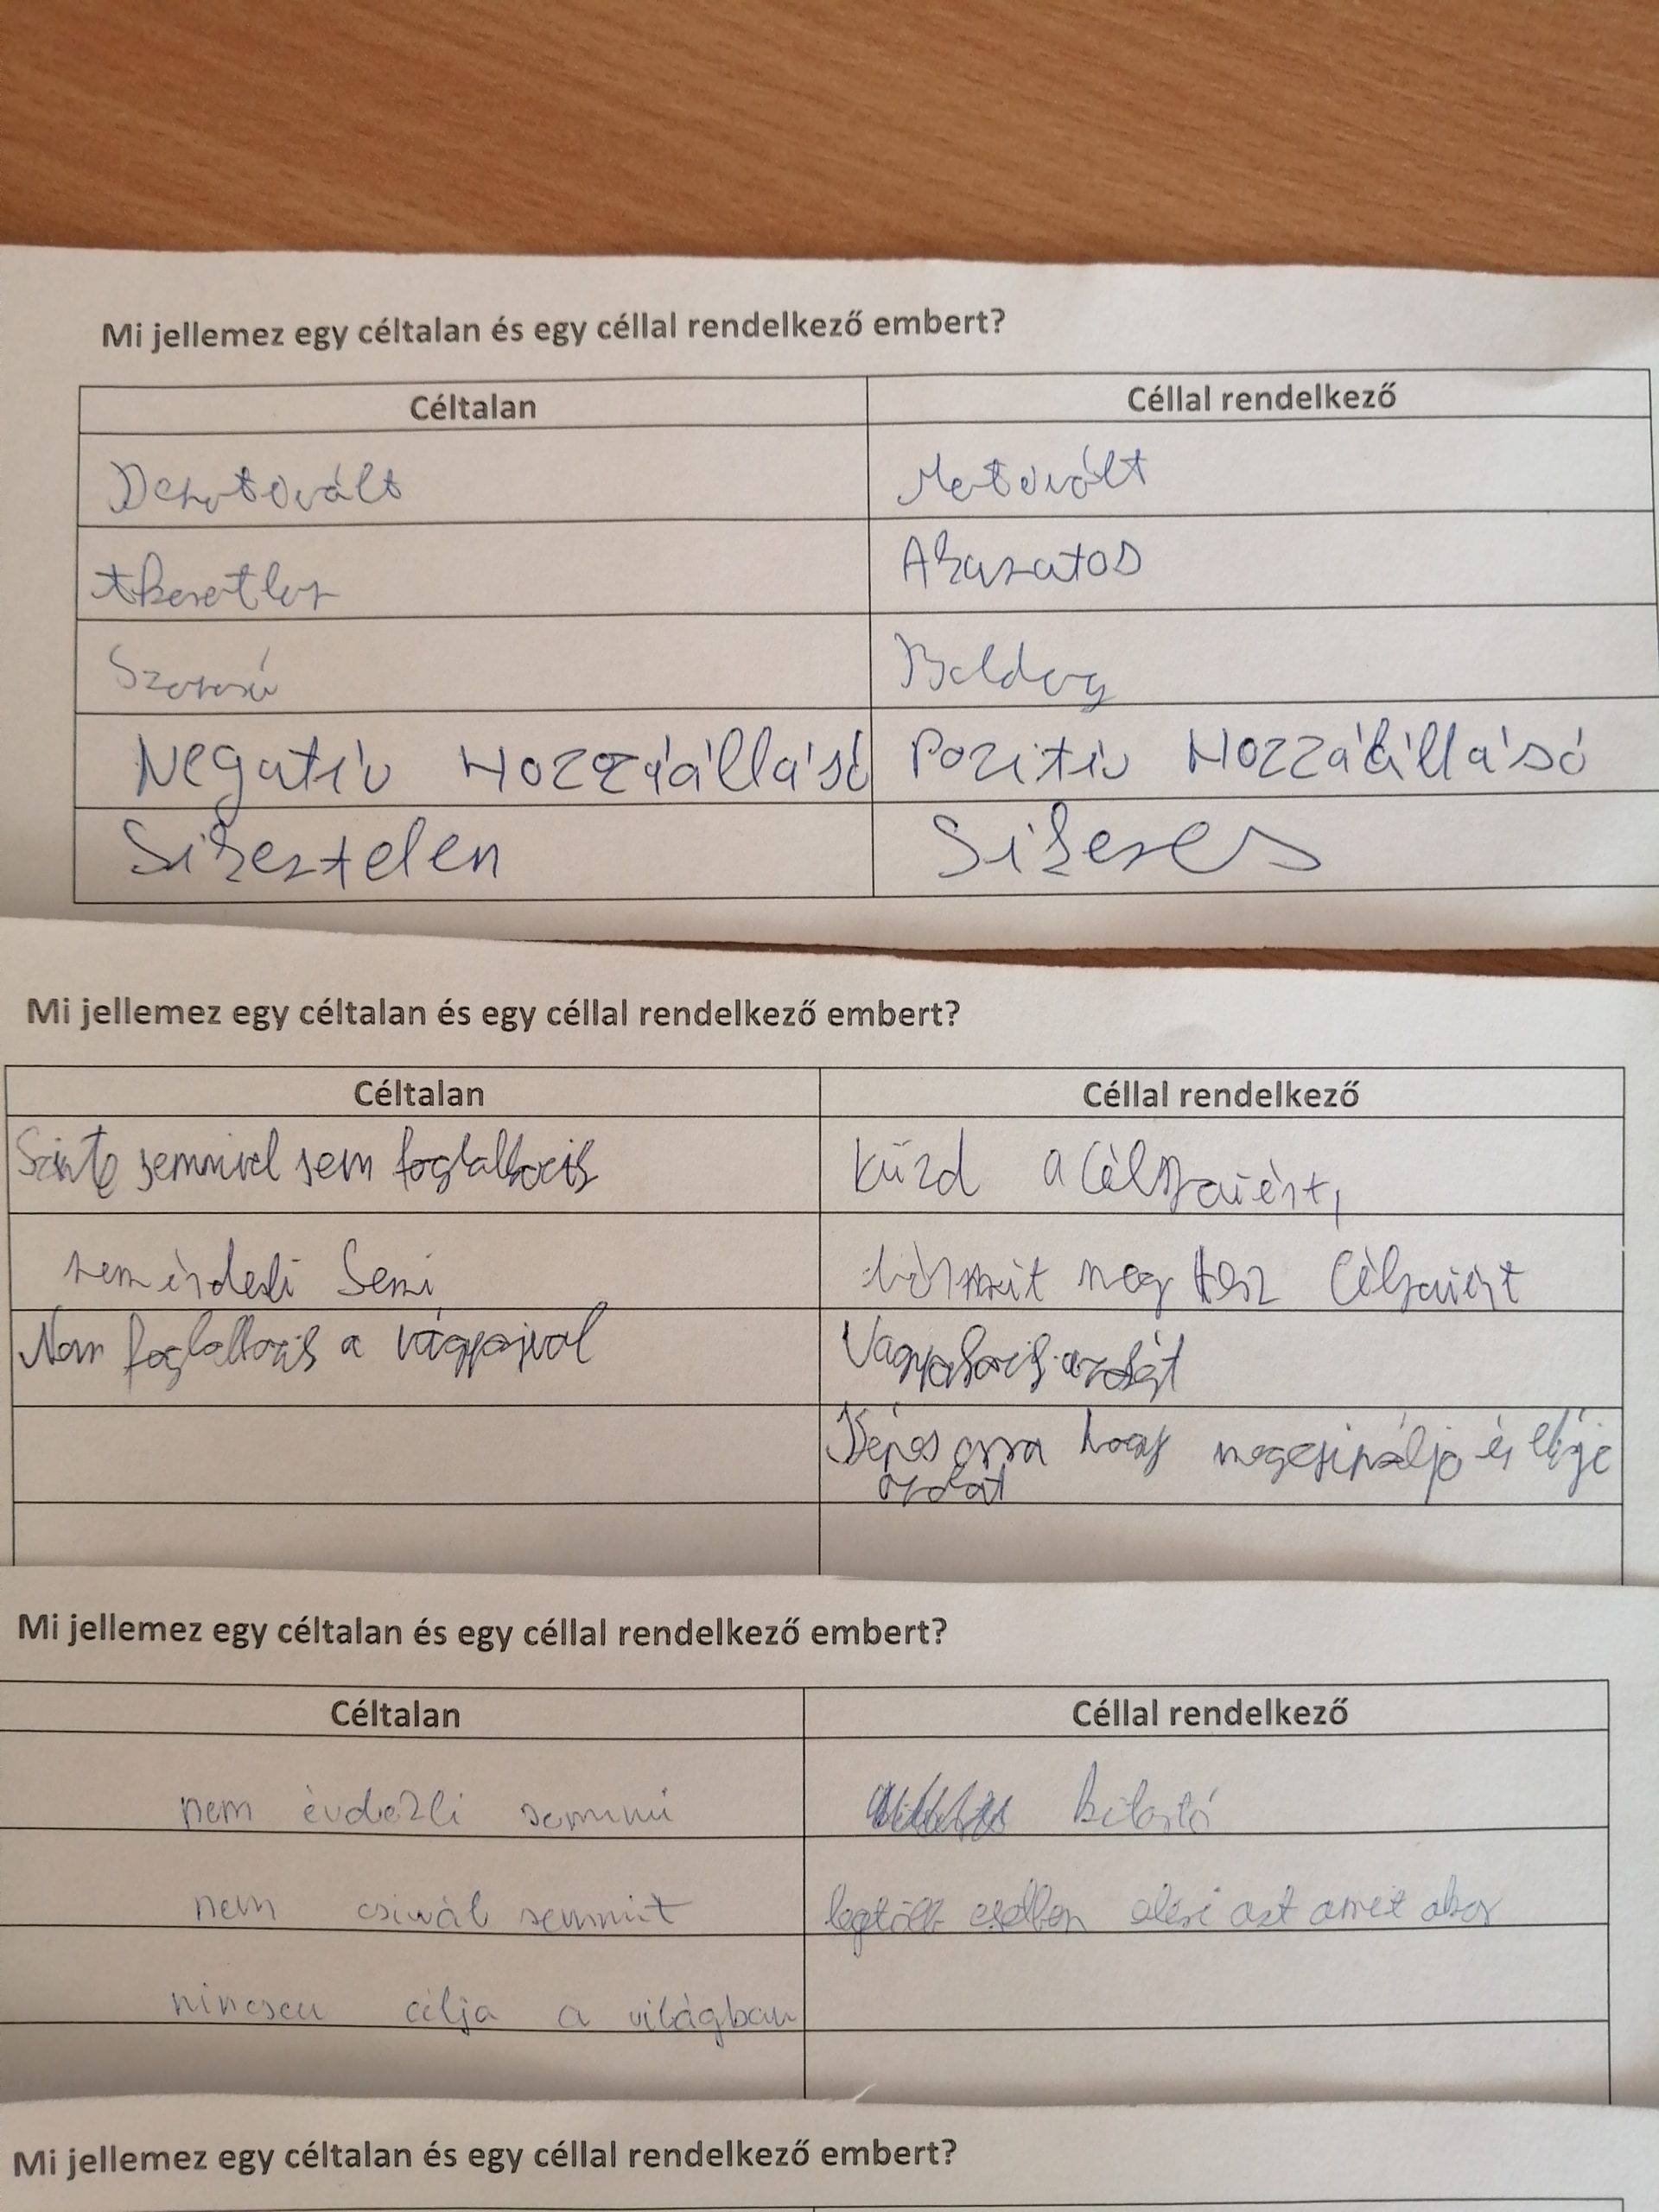 Mi jellemez egy céltalan és egy céllal rendelkező embert?
Céltalan
Céllal rendelkező
Motivált
Akaratos
Szomorú
Boldog
Negatív Hozzáállásó
Pozitív Hozzáállásó
Sikertelen
Sikeres
Mi jellemez egy céltalan és egy céllal rendelkező embert?
Céltalan
Céllal rendelkező
Szinte semmivel sem foglalkozik
küzd a céljaiért,
nem érdekli Semi
bármit meg tesz céljaiért
Nem foglalkozik a vágyaival
Képes arra hogy megcsinálja és eléje
azokat
Mi jellemez egy céltalan és egy céllal rendelkező embert?
Céltalan
Céllal rendelkező
nem érdekli semmi
kitartó
nem csinál semmit
legtöbb esetben eléri azt amit akar
nincsen célja a világban
Mi jellemez egy céltalan és egy céllal rendelkező embert?